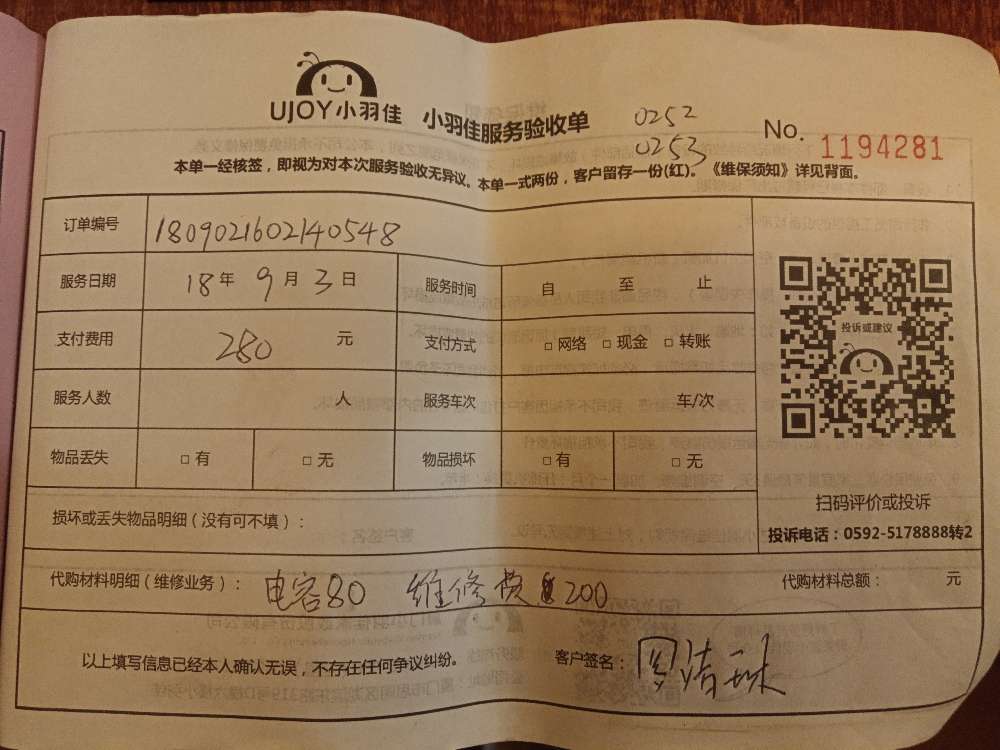 UJOY小羽佳 小羽佳服务验收单 0252
0253
No. 1194281
本单一经核签，即视为对本次服务验收无异议。本单一式两份，客户留存一份(红)。《维保须知》详见背面。
订单编号 1809021602140548
服务日期 18年 9月 3日 服务时间 自 至 止
支付费用 280 元 支付方式 □ 网络 □ 现金 □ 转账
服务人数 人 服务车次 车/次
物品丢失 □ 有 □ 无 物品损坏 □ 有 □ 无
投诉或建议
扫码评价或投诉
投诉电话：0592-5178888转2
损坏或丢失物品明细（没有可不填）：
代购材料明细（维修业务）： 电容80 维修费 200 代购材料总额： 元
以上填写信息已经本人确认无误，不存在任何争议纠纷。 客户签名：